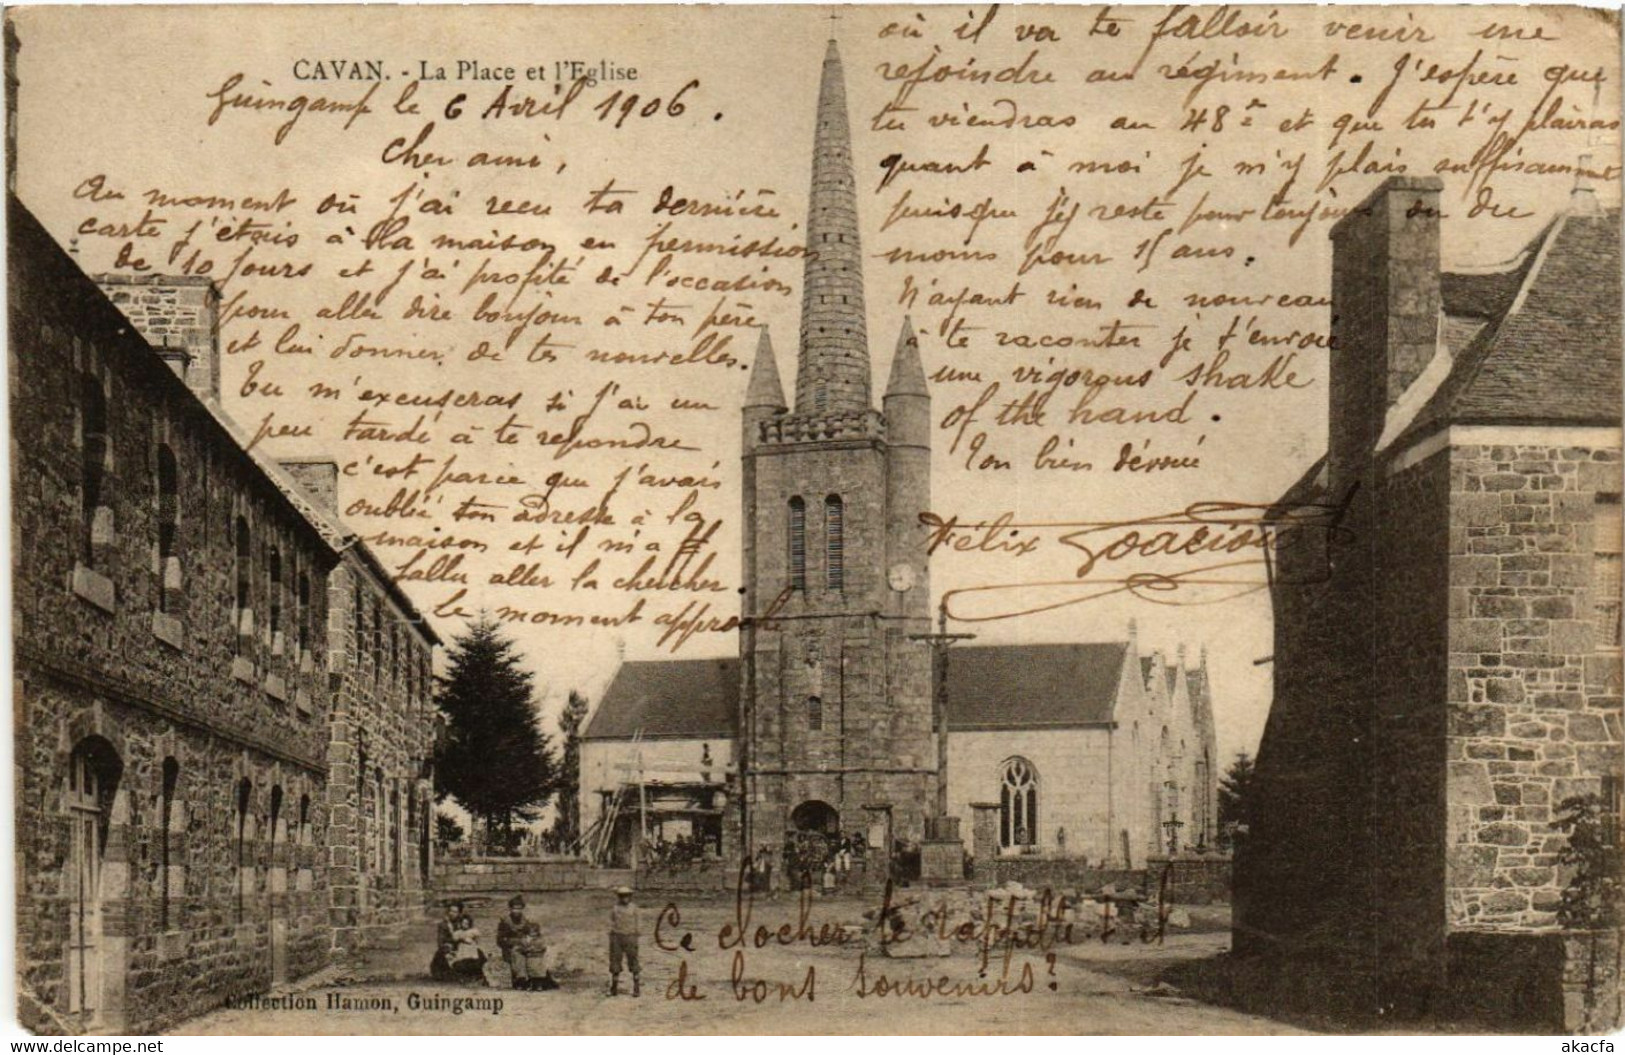 CAVAN. - La Place et l'Eglise
Guingamp le 6 Avril 1906.
Cher ami,
Au moment où j'ai reçu ta dernière
carte j'étais à la maison en permission
de 10 jours et j'ai profité de l'occasion
pour aller dire bonjour à ton père
et lui donner de tes nouvelles.
Tu m'excuseras si j'ai un
peu tardé à te repondre
c'est parce que j'avais
oublié ton adresse à la
maison et il m'a
fallu aller la chercher.
Le moment approche
où il va te falloir venir me
rejoindre au régiment. J'espère que
tu viendras au 48e et que tu t'y plairas
quant à moi je m'y plais suffisamment
puisque j'y reste pour toujours ou du
moins pour 15 ans.
N'ayant rien de nouveau
à te raconter je t'envoie
une vigorous shake
of the hand.
Ton bien dévoué
Félix
Ce clocher te rappelle t-il
de bons souvenirs?
Collection Hamon, Guingamp
akacfa